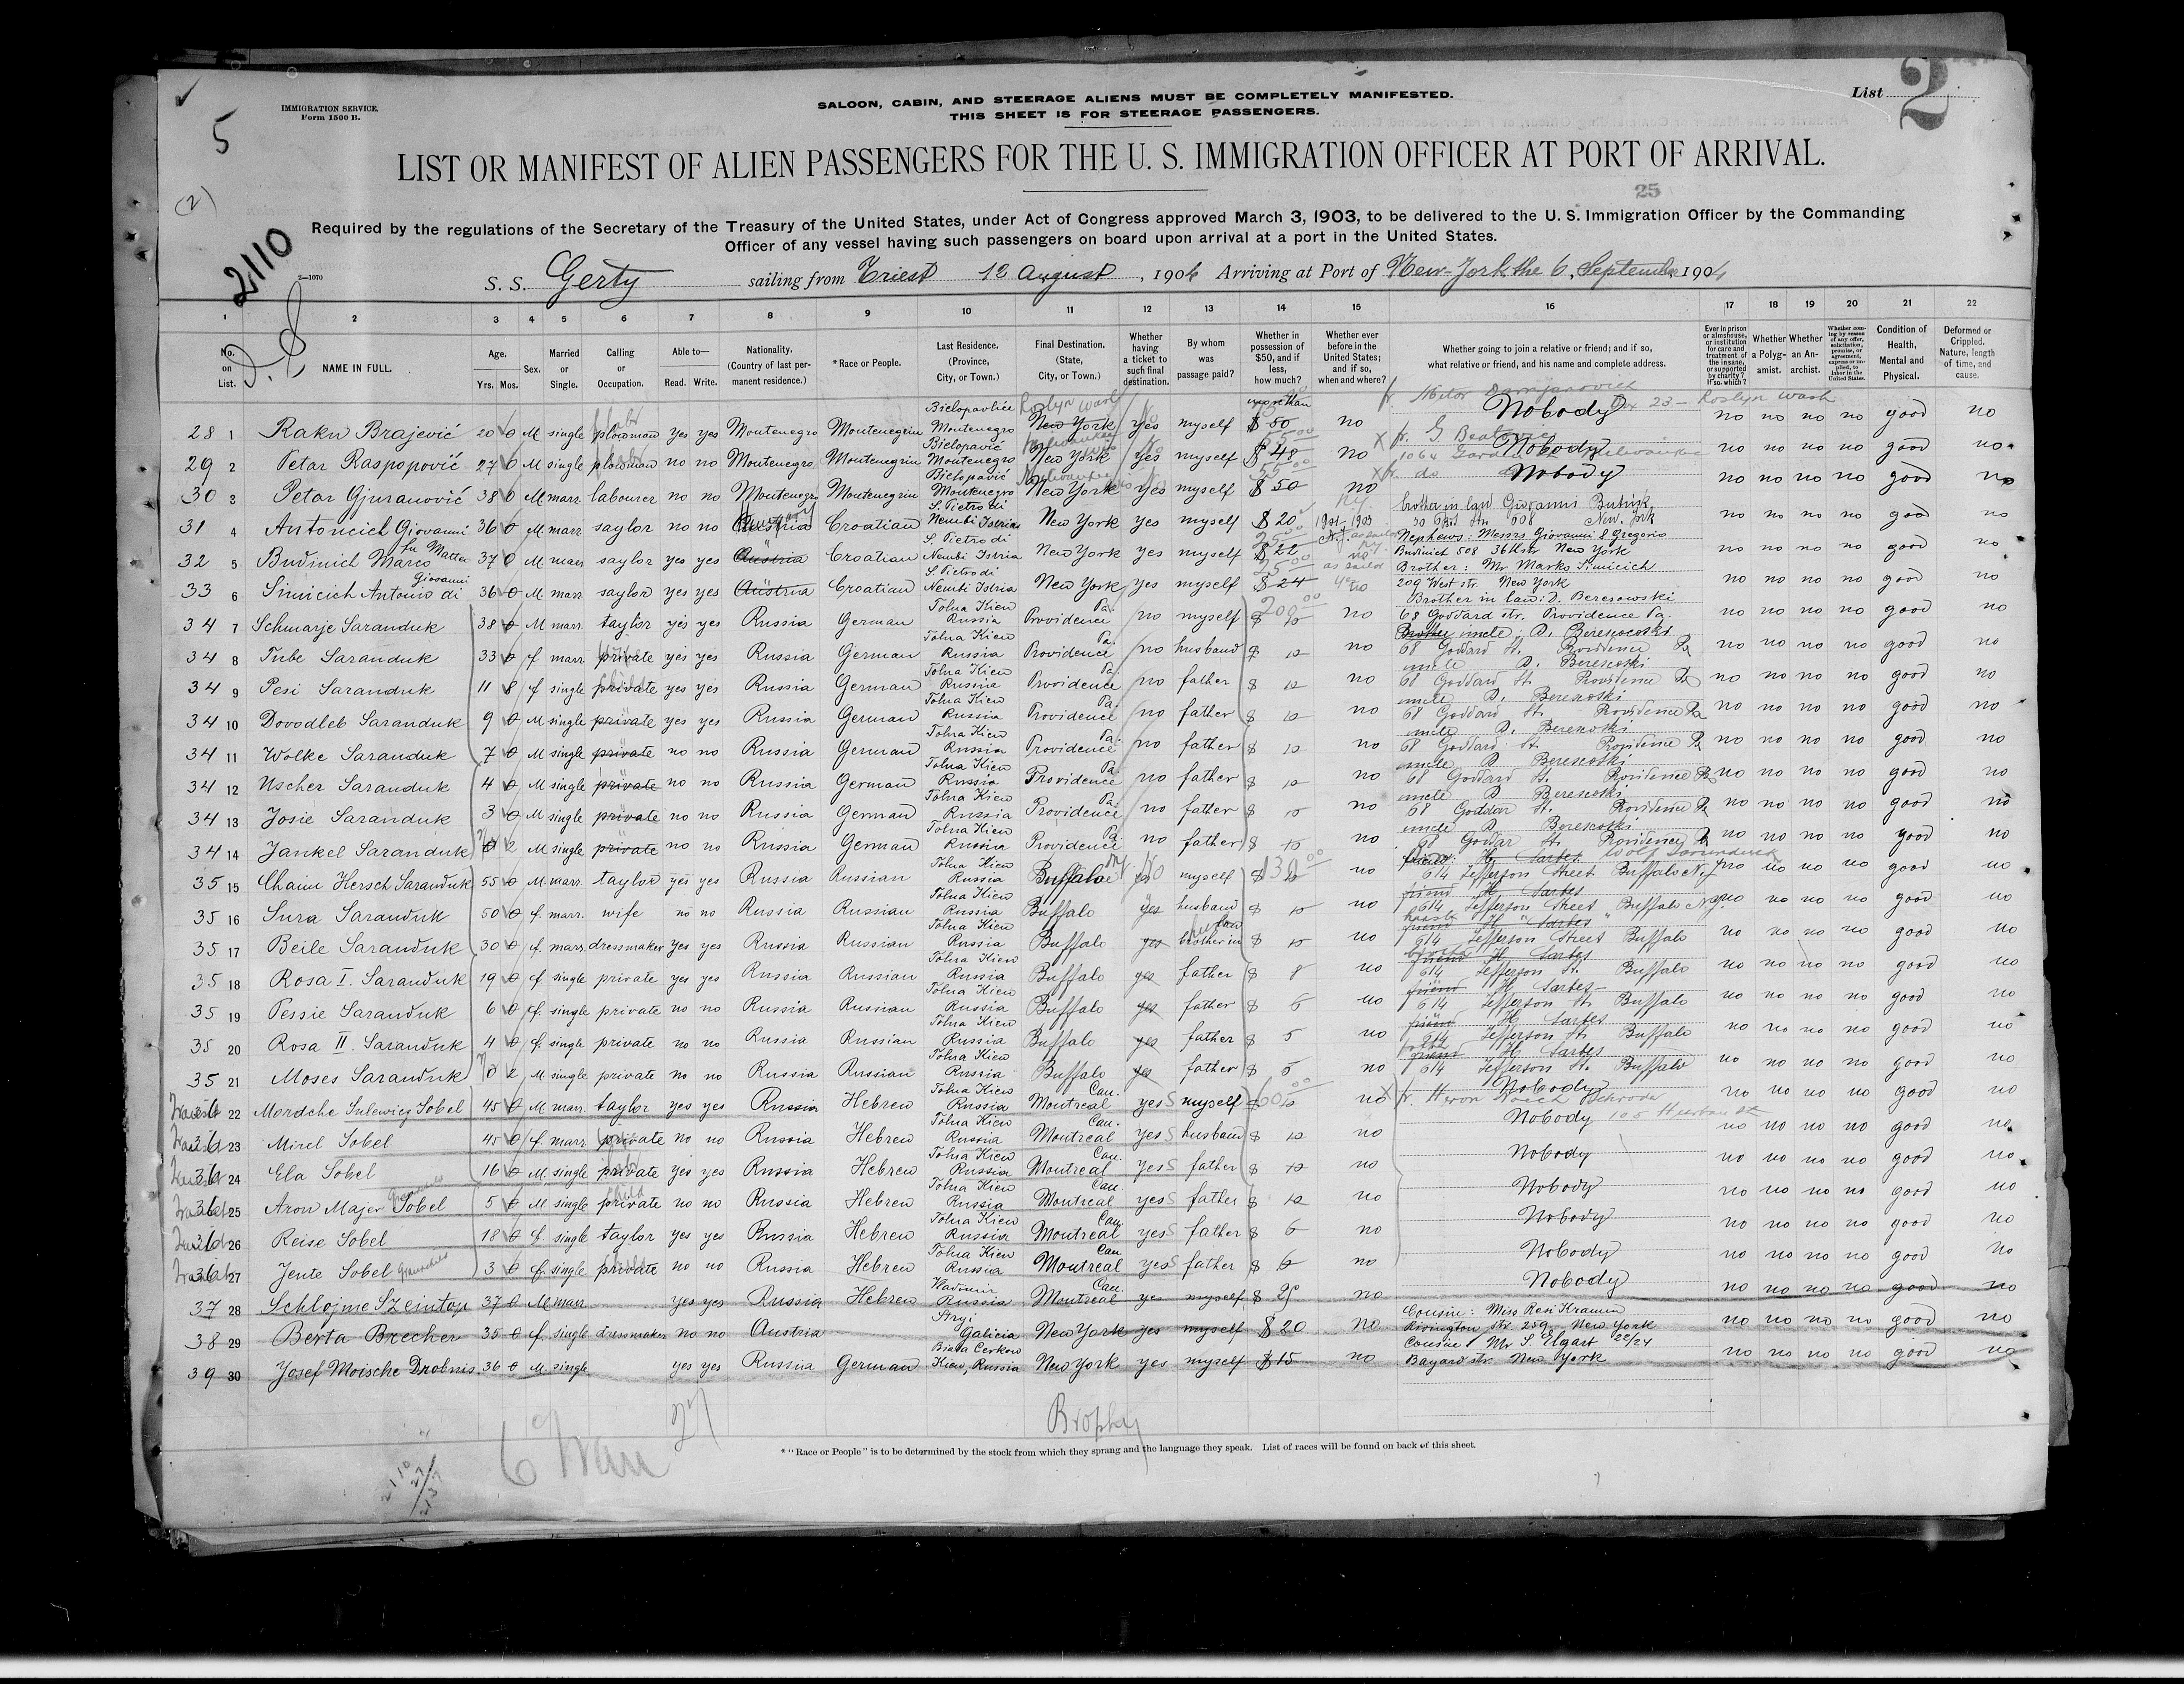 IMMIGRATION SERVICE.
Form 1500 B.
5
(2)
2110
2—1070
SALOON, CABIN, AND STEERAGE ALIENS MUST BE COMPLETELY MANIFESTED.
THIS SHEET IS FOR STEERAGE PASSENGERS.
List 2
LIST OR MANIFEST OF ALIEN PASSENGERS FOR THE U. S. IMMIGRATION OFFICER AT PORT OF ARRIVAL.
25
Required by the regulations of the Secretary of the Treasury of the United States, under Act of Congress approved March 3, 1903, to be delivered to the U. S. Immigration Officer by the Commanding
Officer of any vessel having such passengers on board upon arrival at a port in the United States.
S. S. Gerty sailing from Triest 12 August, 1904 Arriving at Port of New-York the 6, September 1904
1 2 3 4 5 6 7 8 9 10 11 12 13 14 15 16 17 18 19 20 21 22
No. on List.
NAME IN FULL.
Age. Yrs. Mos.
Sex.
Married or Single.
Calling or Occupation.
Able to— Read. Write.
Nationality. (Country of last permanent residence.)
*Race or People.
Last Residence. (Province, City, or Town.)
Final Destination. (State, City, or Town.)
Whether having a ticket to such final destination.
By whom was passage paid?
Whether in possession of $50, and if less, how much?
Whether ever before in the United States; and if so, when and where?
Whether going to join a relative or friend; and if so, what relative or friend, and his name and complete address.
Ever in prison or almshouse, or institution for care and treatment of the insane, or supported by charity? If so, which?
Whether a Polygamist.
Whether an Anarchist.
Whether coming by reason of any offer, solicitation, promise, or agreement, express or implied, to labor in the United States.
Condition of Health, Mental and Physical.
Deformed or Crippled. Nature, length of time, and cause.
28 1 Raku Brajević 20 0 M single plowman yes yes Montenegro Montenegrin Bielopavlice Montenegro New York yes myself more than $50 no Nobody no no no no good no
29 2 Petar Raspopović 27 0 M single plowman no no Montenegro Montenegrin Bielopavić Montenegro New York yes myself $48 no Nobody no no no no good no
30 3 Petar Gjuranović 38 0 M marr. labourer no no Montenegro Montenegrin Bielopavić Montenegro New York yes myself $50 no Nobody no no no no good no
31 4 Antoncich Giovanni 36 0 M marr saylor no no Austria Hungary Croatian S. Pietro di Nembi Istria New York yes myself $20 1901-1903 brother in law Giovanni New York no no no no good no
32 5 Budinich Marco fu Matteo 37 0 M marr saylor yes yes Austria Croatian S. Pietro di Nembi Istria New York yes myself $22 Nephews: Messrs Giovanni & Gregorio Budinich 508 36th str New York no no no no good no
33 6 Simicich Antonio di Giovanni 36 0 M marr saylor yes yes Austria Croatian S. Pietro di Nembi Istria New York yes myself $24 Brother: Mr Marko Simicich 209 West str. New York no no no no good no
34 7 Schmarje Saranduk 38 0 M marr. taylor yes yes Russia German Tolna Kiew Russia Providence Pa. no myself $10 no Brother in law: D. Beresowski 68 Goddard str. Providence Pa. no no no no good no
34 8 Tube Saranduk 33 0 f marr. private yes yes Russia German Tolna Kiew Russia Providence Pa. no husband $10 no uncle 68 Goddard St. Providence Pa no no no no good no
34 9 Pesi Saranduk 11 8 f single private yes yes Russia German Tolna Kiew Russia Providence Pa. no father $10 no uncle 68 Goddard St. Providence Pa no no no no good no
34 10 Dovodleb Saranduk 9 0 M single private yes yes Russia German Tolna Kiew Russia Providence Pa. no father $10 no uncle 68 Goddard St. Providence Pa no no no no good no
34 11 Wolke Saranduk 7 0 M single private no no Russia German Tolna Kiew Russia Providence Pa. no father $10 no uncle 68 Goddard St. Providence Pa no no no no good no
34 12 Uscher Saranduk 4 0 M single private no no Russia German Tolna Kiew Russia Providence Pa no father $10 no uncle 68 Goddard St. Providence Pa no no no no good no
34 13 Josie Saranduk 3 0 M single private no no Russia German Tolna Kiew Russia Providence Pa. no father $10 no uncle 68 Goddar St. Providence Pa no no no no good no
34 14 Jankel Saranduk 0 2 M single private no no Russia German Tolna Kiew Russia Providence Pa. no father $10 no uncle 68 Goddar St. Providence Pa no no no no good no
35 15 Chaim Hersch Saranduk 55 0 M. marr. taylor yes yes Russia Russian Tolna Kiew Russia Buffalo NY no myself $10 no friend: H. Sartes 614 Jefferson Street Buffalo N.Y. no no no no good no
35 16 Sura Saranduk 50 0 f. marr. wife no no Russia Russian Tolna Kiew Russia Buffalo yes husband $10 no friend H. Sartes 614 Jefferson Street Buffalo N.Y. no no no no good no
35 17 Beile Saranduk 30 0 f. marr. dressmaker yes yes Russia Russian Tolna Kiew Russia Buffalo yes brother in $10 no H. Sartes 614 Jefferson Street Buffalo no no no no good no
35 18 Rosa I. Saranduk 19 0 f single private yes yes Russia Russian Tolna Kiew Russia Buffalo yes father $8 no friend H. Sartes 614 Jefferson St. Buffalo no no no no good no
35 19 Pessie Saranduk 6 0 f. single private no no Russia Russian Tolna Kiew Russia Buffalo yes father $5 no friend H. Sartes 614 Jefferson St. Buffalo no no no no good no
35 20 Rosa II. Saranduk 4 0 f. single private no no Russia Russian Tolna Kiew Russia Buffalo yes father $5 no friend H. Sartes 614 Jefferson St. Buffalo no no no no good no
35 21 Moses Saranduk 0 2 M single private no no Russia Russian Tolna Kiew Russia Buffalo yes father $5 no friend H. Sartes 614 Jefferson St. Buffalo no no no no good no
36 22 Mordche Sulewicz Sobel 45 0 M. marr. taylor yes yes Russia Hebrew Tolna Kiew Russia Montreal Can. yes myself $10 no Nobody no no no no good no
36 23 Mirel Sobel 45 0 f. marr. private no no Russia Hebrew Tolna Kiew Russia Montreal Can. yes husband $10 no Nobody no no no no good no
36 24 Ela Sobel 16 0 M. single private yes yes Russia Hebrew Tolna Kiew Russia Montreal Can. yes father $10 no Nobody no no no no good no
36 25 Aron Majer Sobel 5 0 M single private no no Russia Hebrew Tolna Kiew Russia Montreal Can. yes father $10 no Nobody no no no no good no
36 26 Reise Sobel 18 0 f. single taylor yes yes Russia Hebrew Tolna Kiew Russia Montreal Can. yes father $6 no Nobody no no no no good no
36 27 Jente Sobel Grandchild 3 0 f. single private no no Russia Hebrew Tolna Kiew Russia Montreal Can. yes father $6 no Nobody no no no no good no
37 28 Schlojme Szeintop 37 0 M marr yes yes Russia Hebrew Russia Montreal Can. yes myself no Nobody no no no no good no
38 29 Berta Brecher 35 0 f. single dressmaker no no Austria Stryi Galicia New York yes myself $20 no Cousin: Miss Resi Kramer Rivington Str. 259 New York no no no no good no
39 30 Josef Moische Drobnis 36 0 M. single yes yes Russia German Biala Cerkow Kiew, Russia New York yes myself $15 no Cousin Mr S. Elgart 22/24 Bayard str. New York no no no no good no
27
Brophy
* "Race or People" is to be determined by the stock from which they sprang and the language they speak. List of races will be found on back of this sheet.
2110
27
2137